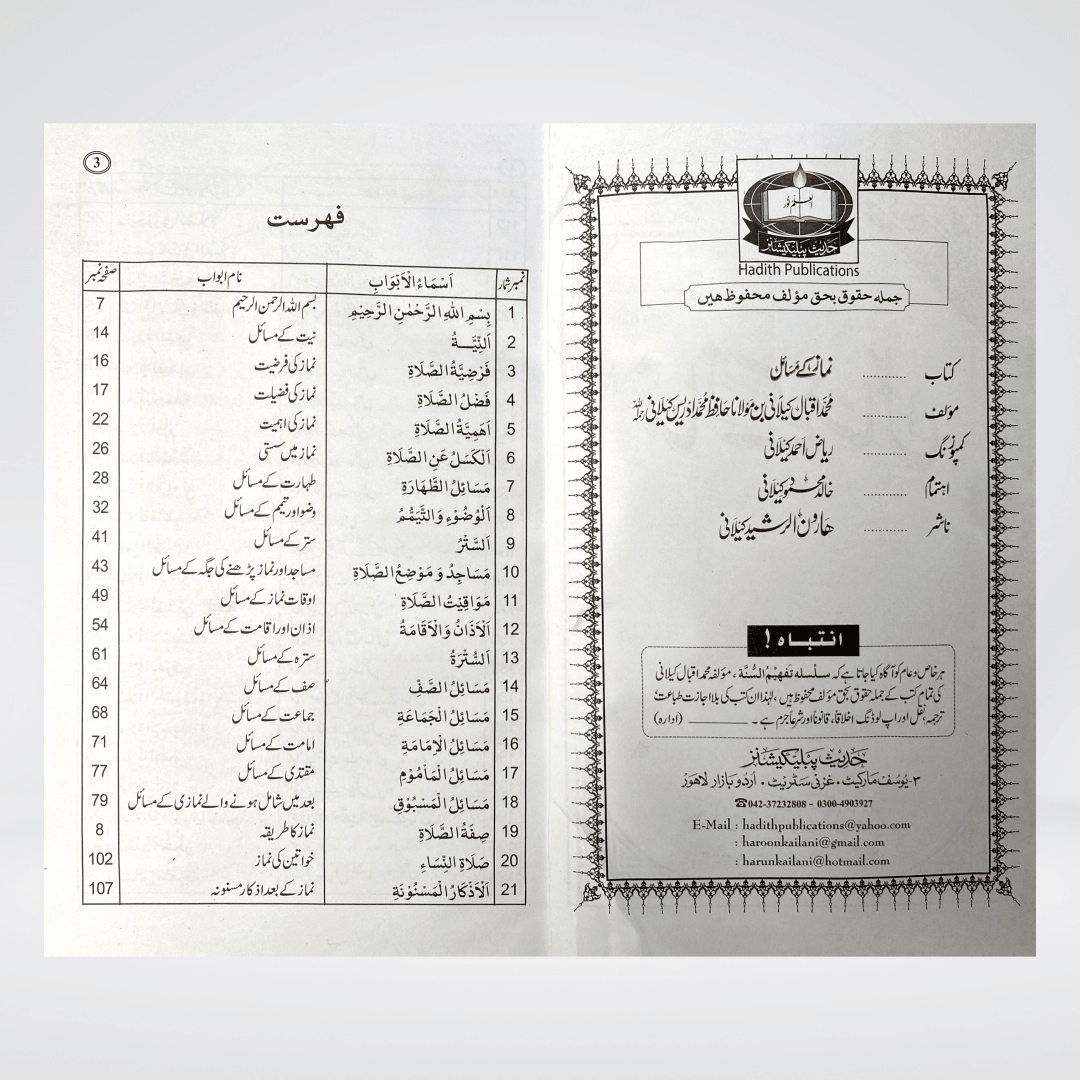 العلم نور
حدیث پبلیکیشنز
Hadith Publications
جملہ حقوق بحق مؤلف محفوظ ھیں
کتاب ............ نماز کے مسائل
مؤلف ............ محمد اقبال کیلانی بن مولانا حافظ محمد ادریس کیلانی رحمہ اللہ
کمپوزنگ ............ ریاض احمد کیلانی
اہتمام ............ خالد محمود کیلانی
ناشر ............ ھارون الرشید کیلانی
انتباہ !
ہر خاص و عام کو آگاہ کیا جاتا ہے کہ سلسلہ تفہیمُ السُّنة ، مؤلفہ محمد اقبال کیلانی
کی تمام کتب کے جملہ حقوق بحق مؤلف محفوظ ہیں ، لہٰذا ان کتب کی بلا اجازت طباعت
ترجمہ، نقل اور اپ لوڈنگ اخلاقاً، قانوناً اور شرعاً جرم ہے ۔ ________ (ادارہ)
حدیث پبلیکیشنز
۳-یُوسف مارکیٹ • غزنی سٹریٹ • اُردو بازار لاھور
☎042-37232808 - 0300-4903927
E-Mail : hadithpublications@yahoo.com
: haroonkailani@gmail.com
: harunkailani@hotmail.com
3
فہرست
نمبر شمار اَسْمَاءُ الْاَبْوَابِ نام ابواب صفحہ نمبر
1 بِسْمِ اللهِ الرَّحْمٰنِ الرَّحِيْمِ بسم اللہ الرحمن الرحیم 7
2 اَلنِّيَّـــةُ نیت کے مسائل 14
3 فَرَضِيَّةُ الصَّلَاةِ نماز کی فرضیت 16
4 فَضْلُ الصَّلَاةِ نماز کی فضیلت 17
5 اَهَمِيَّةُ الصَّلَاةِ نماز کی اہمیت 22
6 اَلْكَسَلُ عَنِ الصَّلَاةِ نماز میں سستی 26
7 مَسَائِلُ الطَّهَارَةِ طہارت کے مسائل 28
8 اَلْوُضُوْءِ وَالتَّيَمُّمُ وضو اور تیمم کے مسائل 32
9 اَلسَّتْرُ ستر کے مسائل 41
10 مَسَاجِدُ وَ مَوْضِعُ الصَّلَاةِ مساجد اور نماز پڑھنے کی جگہ کے مسائل 43
11 مَوَاقِيْتُ الصَّلَاةِ اوقات نماز کے مسائل 49
12 اَلْاَذَانُ وَالْاَقَامَةُ اذان اور اقامت کے مسائل 54
13 اَلسُّتْرَةُ سترہ کے مسائل 61
14 مَسَائِلُ الصَّفِّ صف کے مسائل 64
15 مَسَائِلُ الْجَمَاعَةِ جماعت کے مسائل 68
16 مَسَائِلُ الْاِمَامَةِ امامت کے مسائل 71
17 مَسَائِلُ الْمَأْمُوْمِ مقتدی کے مسائل 77
18 مَسَائِلُ الْمَسْبُوْقِ بعد میں شامل ہونے والے نمازی کے مسائل 79
19 صِفَةُ الصَّلَاةِ نماز کا طریقہ 8
20 صَلَاةُ النِّسَاءِ خواتین کی نماز 102
21 اَلْاَذْكَارُ الْمَسْنُوْنَةِ نماز کے بعد اذکار مسنونہ 107